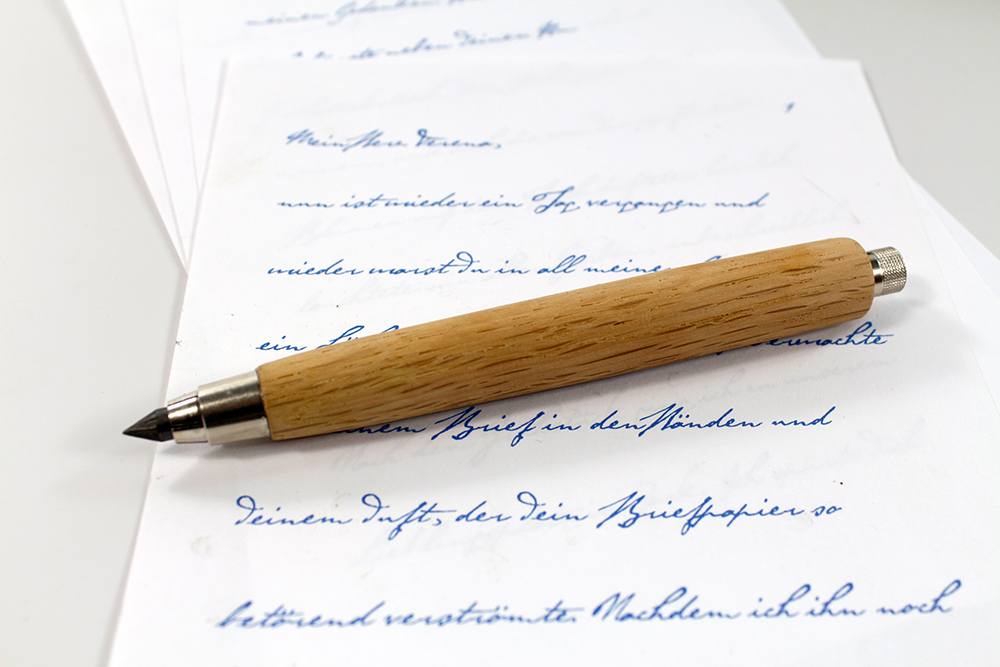 meinen Gedanken
neben deinen
Meine Verena,
nun ist wieder ein Tag vergangen und
wieder warst du in all meinen
ein vermochte
Brief in den Händen und
deinem Duft, der dein Briefpapier so
betörend verströmte. Nachdem ich ihn noch